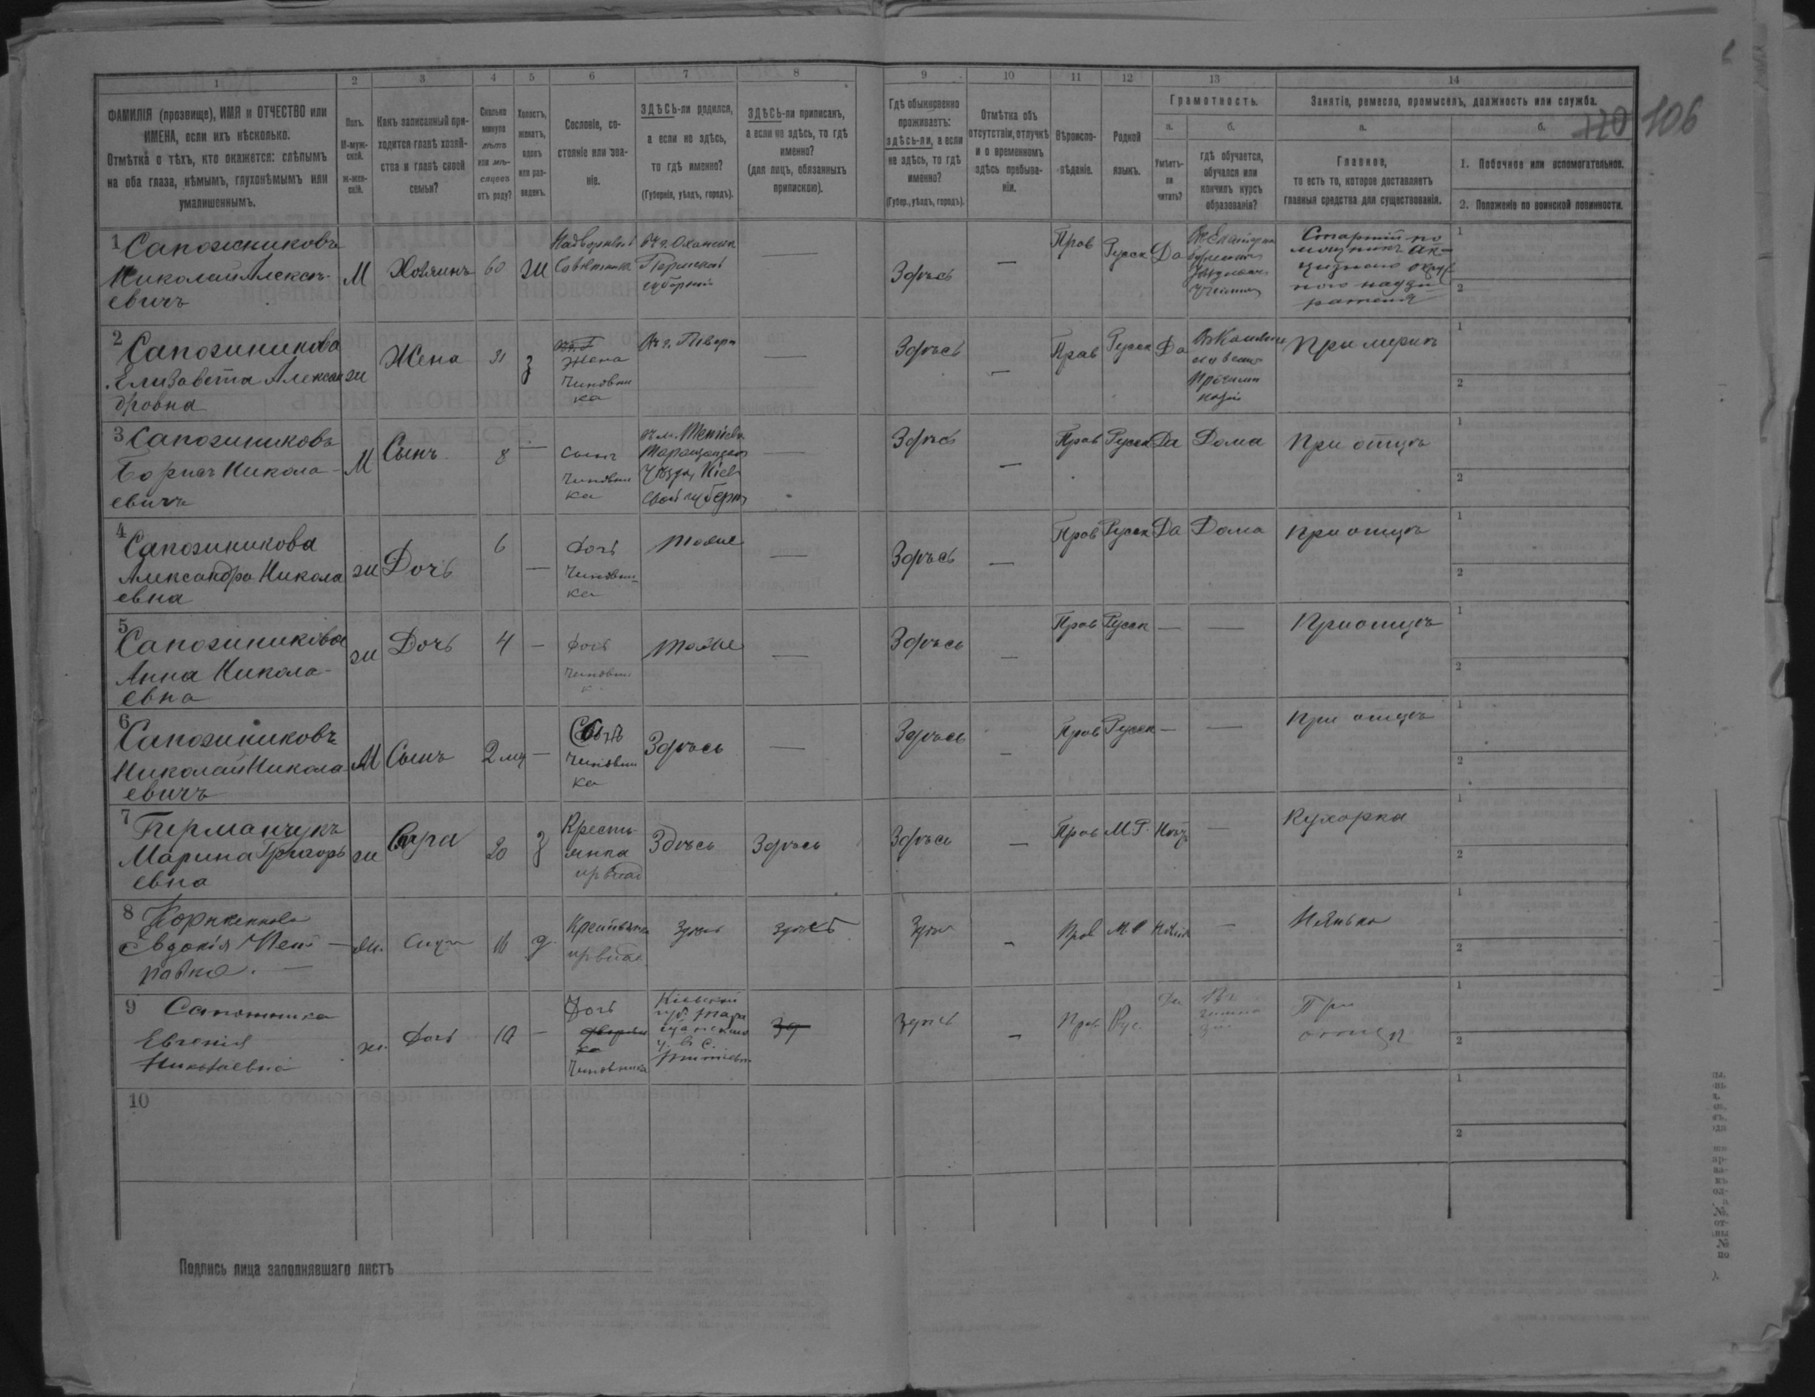 1 2 3 4 5 6 7 8 9 10 11 12 13 14
ФАМИЛІЯ (прозвище), ИМЯ и ОТЧЕСТВО или
ИМЕНА, если ихъ нѣсколько.
Отмѣтка о тѣхъ, кто окажется: слѣпымъ
на оба глаза, нѣмымъ, глухонѣмымъ или
умалишеннымъ.
Полъ.
М-муж-
ской.
Ж-жен-
скій.
Какъ записанный при-
ходится главѣ хозяй-
ства и главѣ своей
семьи?
Сколько
минуло
лѣтъ
или мѣ-
сяцевъ
отъ роду?
Холостъ,
женатъ,
вдовъ
или раз-
веденъ.
Сословіе, со-
стояніе или зва-
ніе.
ЗДѢСЬ-ли родился,
а если не здѣсь,
то гдѣ именно?
(Губернія, уѣздъ, городъ).
ЗДѢСЬ-ли приписанъ,
а если не здѣсь, то гдѣ
именно?
(для лицъ, обязанныхъ
припискою).
Гдѣ обыкновенно
проживаетъ:
здѣсь-ли, а если
не здѣсь, то гдѣ
именно?
(Губер., уѣздъ, городъ).
Отмѣтка объ
отсутствіи, отлучкѣ
и о временномъ
здѣсь пребыва-
ніи.
Вѣроиспо-
вѣданіе.
Родной
языкъ.
Грамотность.
а.
Умѣетъ-
ли
читать?
б.
гдѣ обучается,
обучался или
кончилъ курсъ
образованія?
Занятія, ремесло, промыселъ, должность или служба.
а.
Главное,
то есть то, которое доставляетъ
главныя средства для существованія.
б.
1. Побочное или вспомогательное.
2. Положеніе по воинской повинности.
110 106
1 Сапожниковъ
Николай Алексѣ-
евичъ
М
Хозяинъ
60
ж
Надворный
Совѣтникъ
Въ г. Оханскѣ
Пермской
губерніи
—
Здѣсь
—
Прав
Русск
Да
Старшій по
мощникъ Ак-
цизнаго окруж
наго надзи
рателя
1
2
2 Сапожникова
Елизавета Алексан
дровна
ж
Жена
31
з
Жена
Чиновни
ка
Въ г. Тверѣ
—
Здѣсь
—
Прав
Русск
Да
При мужѣ
1
2
3 Сапожниковъ
Борисъ Никола-
евичъ
М
Сынъ
8
—
Сынъ
Чиновни
ка
Таращанскаго
Уѣзда, Кіев
ской губерн
—
Здѣсь
—
Прав
Русск
Да
Дома
При отцѣ
1
2
4 Сапожникова
Александра Никола
евна
ж
Дочь
6
—
Дочь
Чиновни-
ка
Тоже
—
Здѣсь
—
Прав
Русск
Да
Дома
При отцѣ
1
2
5 Сапожникова
Анна Никола-
евна
ж
Дочь
4
—
Дочь
Чиновни
Тоже
—
Здѣсь
—
Прав
Русск
—
—
При отцѣ
1
2
6 Сапожниковъ
Николай Никола
евичъ
М
Сынъ
2 мц
—
Сынъ
Чиновни
ка
Здѣсь
—
Здѣсь
—
Прав
Русск
—
—
При отцѣ
1
2
7 Германчукъ
Марина Григорь
евна
ж
20
з
Крестья
янка
Здѣсь
Здѣсь
Здѣсь
—
Прав
М.Р.
Нѣтъ
—
Кухарка
1
2
8
Евдокія Пет-
ровна. —
ж.
16
д
Крестьянка
Здѣсь
Здѣсь
Здѣсь
—
Прав
М.Р.
Нѣтъ
—
Нянька
1
2
9 Сапожникова
Евгенія
Николаевна
ж.
Дочь
10
—
Дочь
Чиновника
Кіевской
губ Тара
щанскаго
у. в с.
зд
Здѣсь
—
Прав
Рус.
Да
При
отцѣ
1
2
10
1
2
Подпись лица заполнявшаго листъ